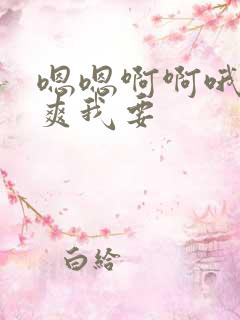 嗯嗯啊啊哦
爽我要
白给